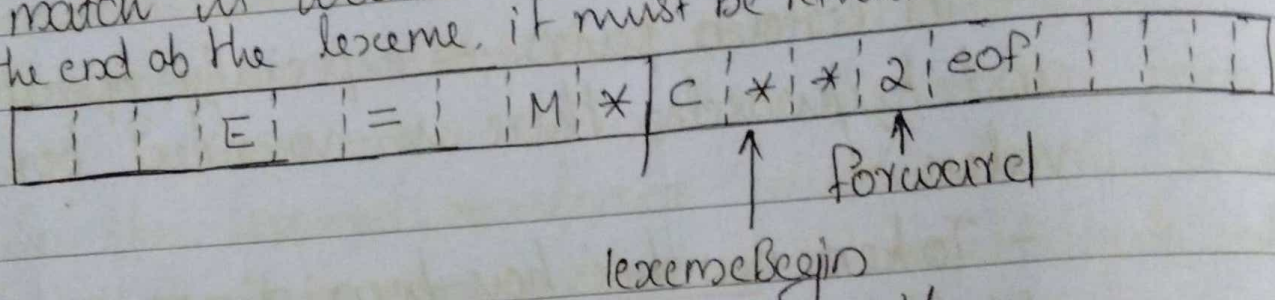 match in
the end ob the lexeme. it must be
E = M * C * * 2 eof
forward
lexemeBegin